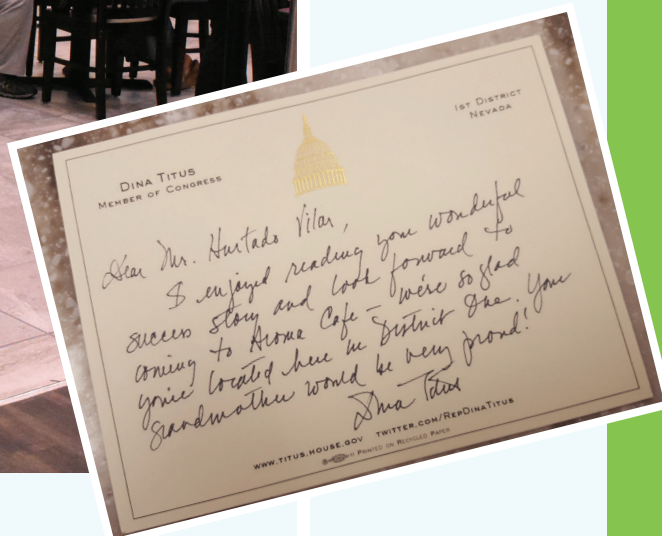 DINA TITUS
MEMBER OF CONGRESS
1ST DISTRICT
NEVADA
Dear Mr. Hurtado Vilar,
I enjoyed reading your wonderful
success story and look forward to
coming to Aroma Cafe – we're so glad
you're located here in District One. Your
grandmother would be very proud!
Dina Titus
WWW.TITUS.HOUSE.GOV TWITTER.COM/REPDINATITUS
PRINTED ON RECYCLED PAPER